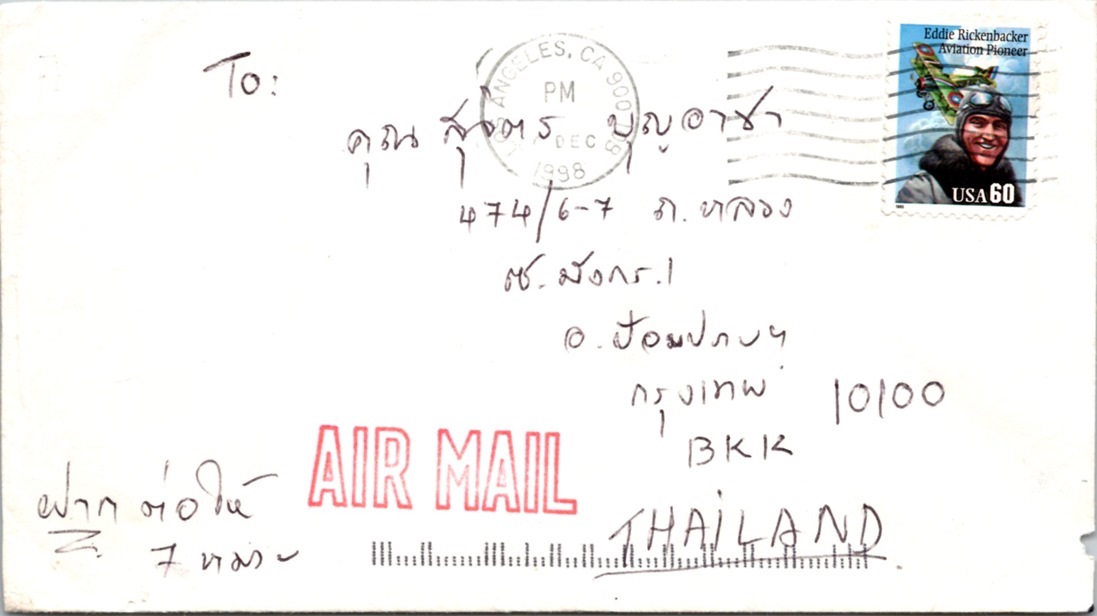 Eddie Rickenbacker
Aviation Pioneer
USA 60
LOS ANGELES, CA 900
PM
DEC
1998
To:
คุณ สุจิตร บุญอาชา
474/6-7 ถ.หลวง
ซ.มังกร.1
อ.ป้อมปราบฯ
กรุงเทพ 10100
BKK
THAILAND
AIR MAIL
ฝาก ต่อให้